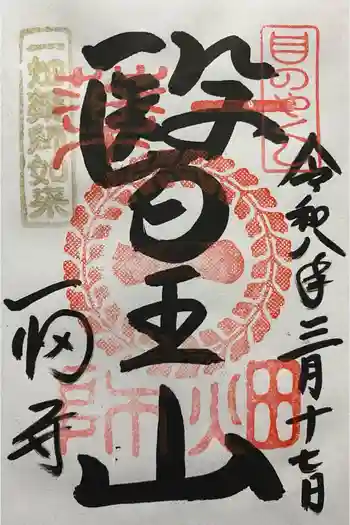 目のやくし
令和八年三月十七日
醫王山
一畑
薬師
一畑寺